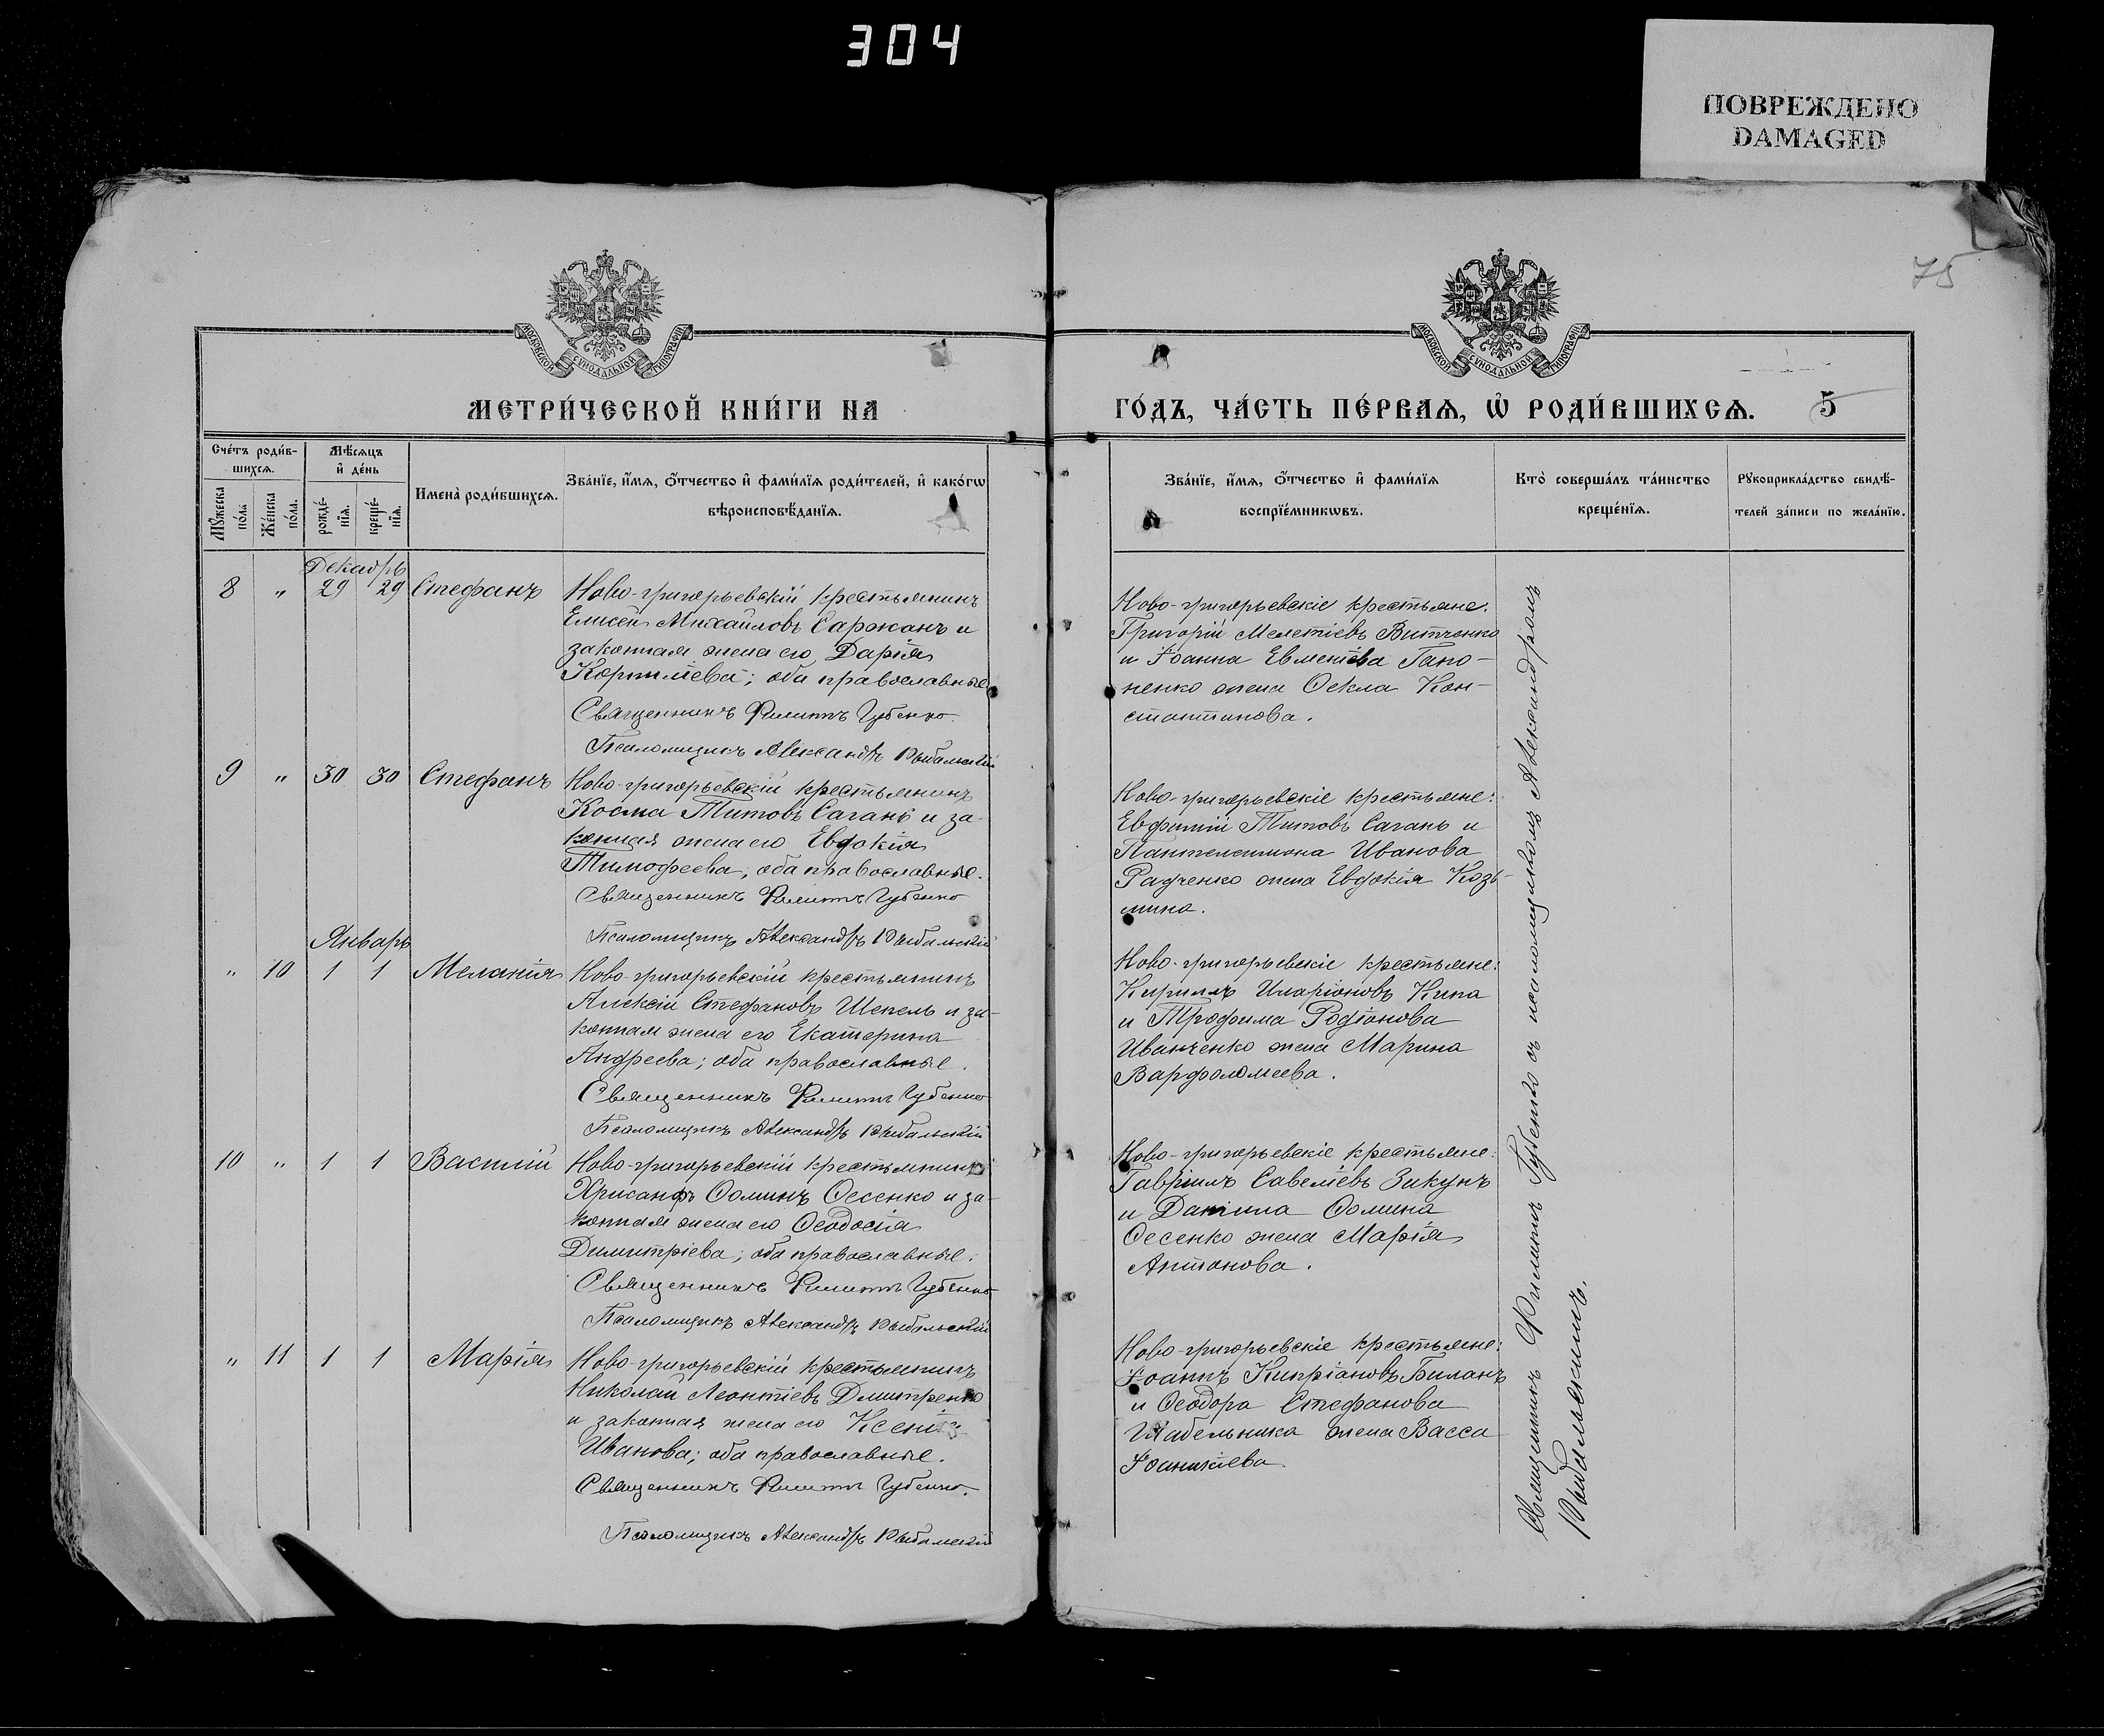 304
ПОВРЕЖДЕНО
DAMAGED
75
МОСКОВСКОЙ СѴНОДАЛЬНОЙ ТИПОГРАФІИ
МОСКОВСКОЙ СѴНОДАЛЬНОЙ ТИПОГРАФІИ
МЕТРИ́ЧЕСКОЙ КНИ́ГИ НА
ГО́ДЪ, ЧА́СТЬ ПЕ́РВАѦ, Ѡ҆ РОДИ́ВШИХСѦ. 5
Сче́тъ роди́в-
шихсѧ.
Мꙋ́жеска
по́ла
Же́нска
по́ла.
Мѣ́сѧцъ
и҆ де́нь
рожде́-
нїѧ.
креще́-
нїѧ.
Имена̀ роди́вшихсѧ.
Зва́нїе, и҆́мѧ, ѻ҆́тчество и҆ фами́лїѧ роди́телей, и҆ како́гѡ
вѣроисповѣ́данїѧ.
Зва́нїе, и҆́мѧ, ѻ҆́тчество и҆ фами́лїѧ
воспрїе́мникѡвъ.
Кто̀ соверша́лъ та́инство
креще́нїѧ.
Рꙋкоприкла́дство свидѣ́-
телей за́писи по жела́нїю.
Декабрь
8 " 29 29 Стефанъ
Ново-григорьевскій крестьянинъ
Елисей Михайловъ Саржанъ и
законная жена его Дарія
Корнилiева; оба православные
Священникъ Филиппъ Губенко.
Псаломщикъ Александръ Рыбальскій
Ново-григорьевскіе крестьяне:
Григорій Мелетіевъ Витченко
и Іоанна Евменіева Гапо-
ненко жена Ѳекла Кон-
стантинова.
9 " 30 30 Стефанъ
Ново-григорьевскій крестьянинъ
Косма Титовъ Сагань и за-
конная жена его Евдокія
Тимофеева; оба православные.
Священникъ Филиппъ Губенко
Псаломщикъ Александръ Рыбальскій
Ново-григорьевскіе крестьяне:
Евфимій Титовъ Сагань и
Пантелеимона Иванова
Радченко жена Евдокія Козь-
мина.
Январь
" 10 1 1 Меланія
Ново-григорьевскій крестьянинъ
Алексій Стефановъ Шепель и за-
конная жена его Екатерина
Андреева; оба православные.
Священникъ Филиппъ Губенко
Псаломщикъ Александръ Рыбальскій
Ново-григорьевскіе крестьяне:
Кириллъ Иларіоновъ Кипа
и Трофима Родіонова
Иванченко жена Марина
Варфоломеева.
10 " 1 1 Василій
Ново-григорьевскій крестьянинъ
Хрисанфъ Ѳоминъ Ѳесенко и за-
конная жена его Ѳеодосія
Димитріева; оба православные.
Священникъ Филиппъ Губенко
Псаломщикъ Александръ Рыбальскій
Ново-григорьевскіе крестьяне:
Гавріилъ Савеліевъ Зикунъ
и Даніила Ѳомина
Ѳесенко жена Марія
Антонова.
" 11 1 1 Марія
Ново-григорьевскій крестьянинъ
Николай Леонтіевъ Дмитренко
и законная жена его Ксенія
Иванова; оба православные.
Священникъ Филиппъ Губенко.
Псаломщикъ Александръ Рыбальскій
Ново-григорьевскіе крестьяне:
Іоаннъ Кипріановъ Биланъ
и Ѳеодора Стефанова
жена Васса
Іоаникіева.
Священникъ Филиппъ Губенко съ псаломщикомъ Александромъ
Рыбальскимъ.